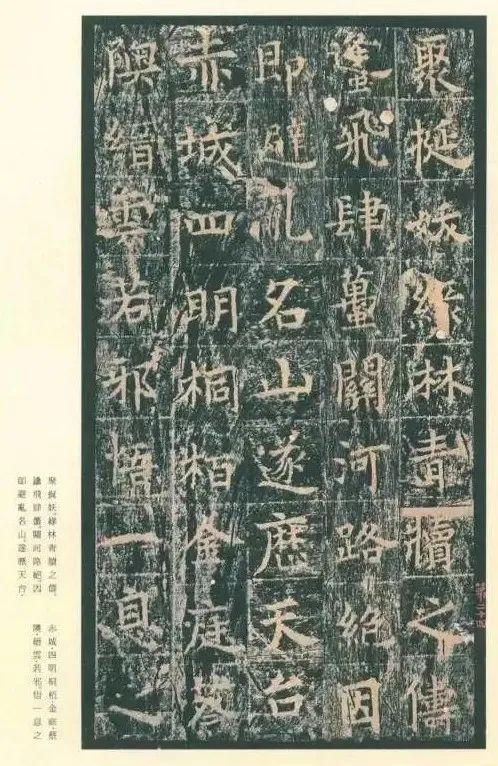 聚挻妖綠林青犢之儔
蠭飛肆蠆關河路絕因
即避亂名山遂歷天台
赤城四明桐栢金庭蔡
隩縉雲若邪悟一息之
聚挻妖。綠林青犢之儔。
蠭飛肆蠆。關河路絕。因
即避亂名山。遂歷天台。
赤城。四明。桐栢。金庭。蔡
隩。縉雲。若邪。悟一息之